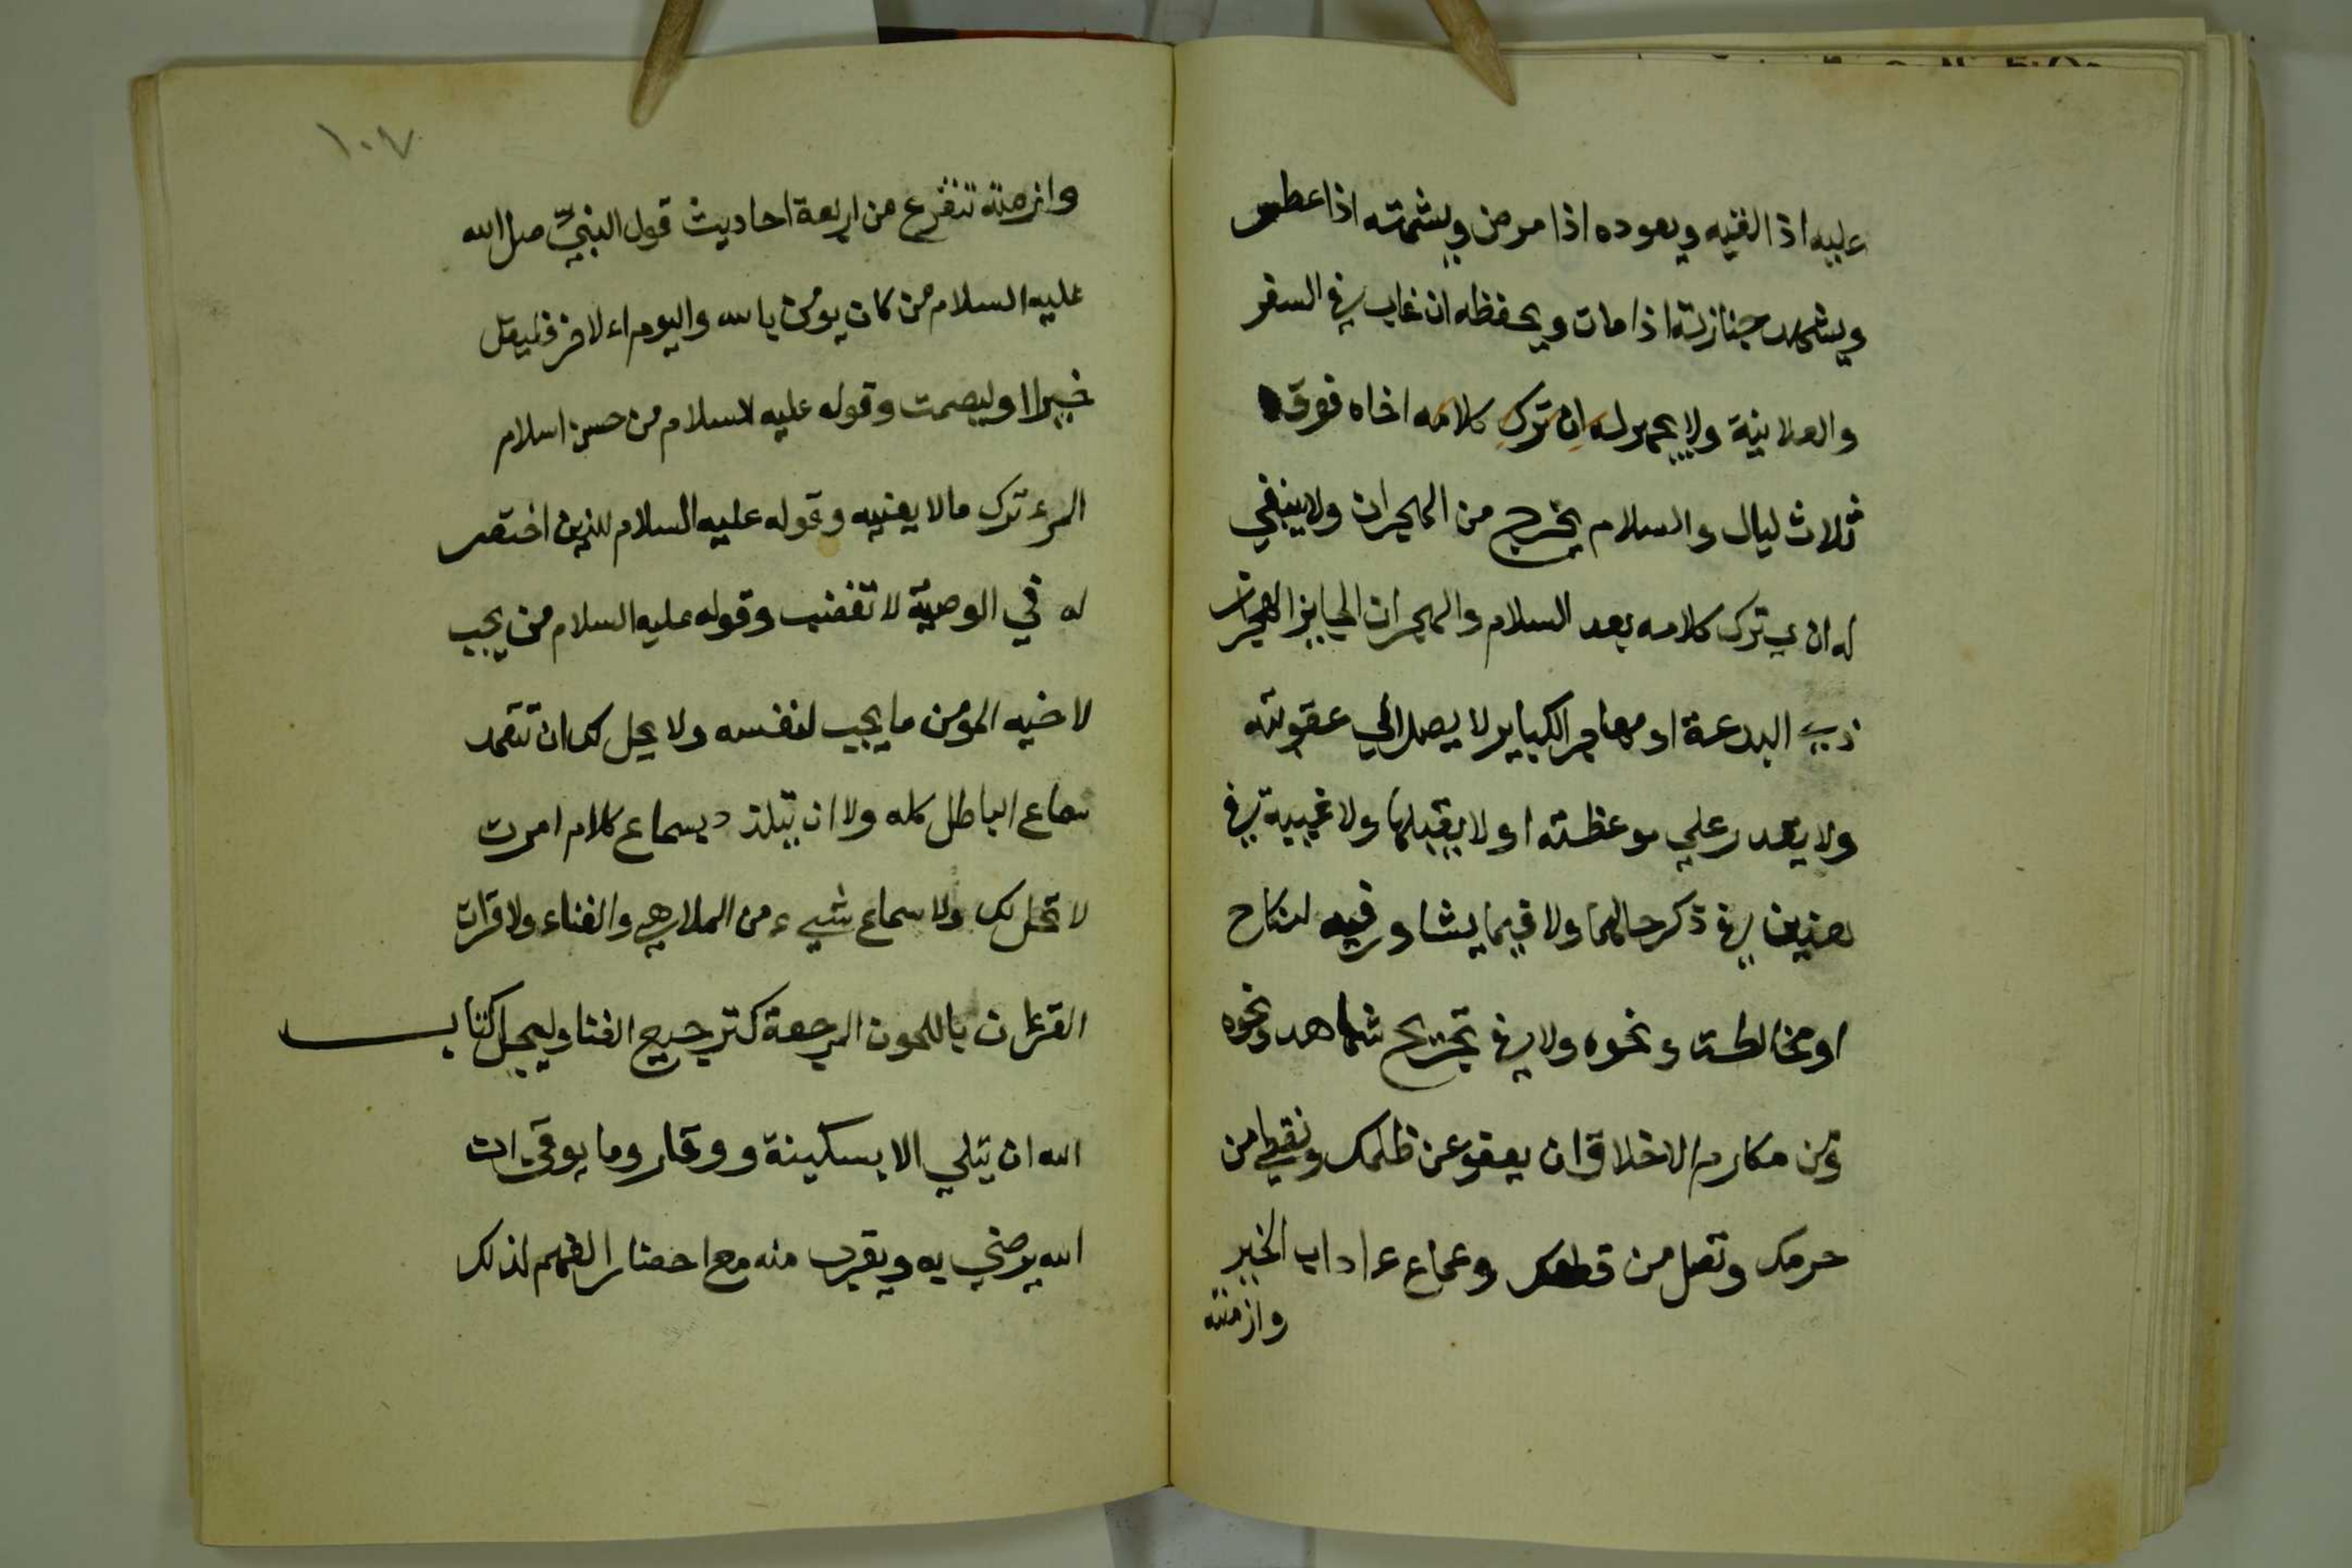 عليه اذ القيه ويعوده اذا مرض ويشمته اذا عطس
ويشهد جنازته اذا مات ويحفظه ان غاب في السفر
والعلانية ولا يحجر له ان ترك كلامه اخاه فوق
ثلاث ليال والسلام يخرج من الهجران ولا ينبغي
له ان يترك كلامه بعد السلام والهجران الجايز الهجران
ذي البدعة او مهاجر الكباير لا يصل الي عقوبته
ولا يقدر علي موعظته او لا يقبلها ولا غيبة في
هذين في ذكر حالهما ولا فيما يشاور فيه لنكاح
او مخالطت ونحوه ولا في تجريح شاهد ونحوه
ومن مكارم الاخلاق ان يعفو عن ظلمك وتعطي من
حرمك وتصل من قطعك وجماع ءاداب الخير
وازمته
١٠٧
وازمته تتفرع من اربعة احاديث قول النبيّ صل الله
عليه السلام من كان يومن بالله واليوم الاخر فليقل
خيرا اوليصمت وقوله عليه السلام من حسن اسلام
المرء ترك مالا يعنيه وقوله عليه السلام للذين اختصر
له في الوصية لا تغضب وقوله عليه السلام من يحب
لاخيه المؤمن ما يحب لنفسه ولا يحل لك ان تتعمد
سماع الباطل كله ولا ان تتلذ د بسماع كلام امرت
لا تحل لك ولا سماع شيء من الملاهي والغناء ولا قرات
القرءان باللحون المرجعة كترجيح الغنا وليجل كتاب
الله ان يتلي الا بسكينة ووقار وما يوقن ان
الله يرضي به ويقرب منه مع احضار الفهم لذلك